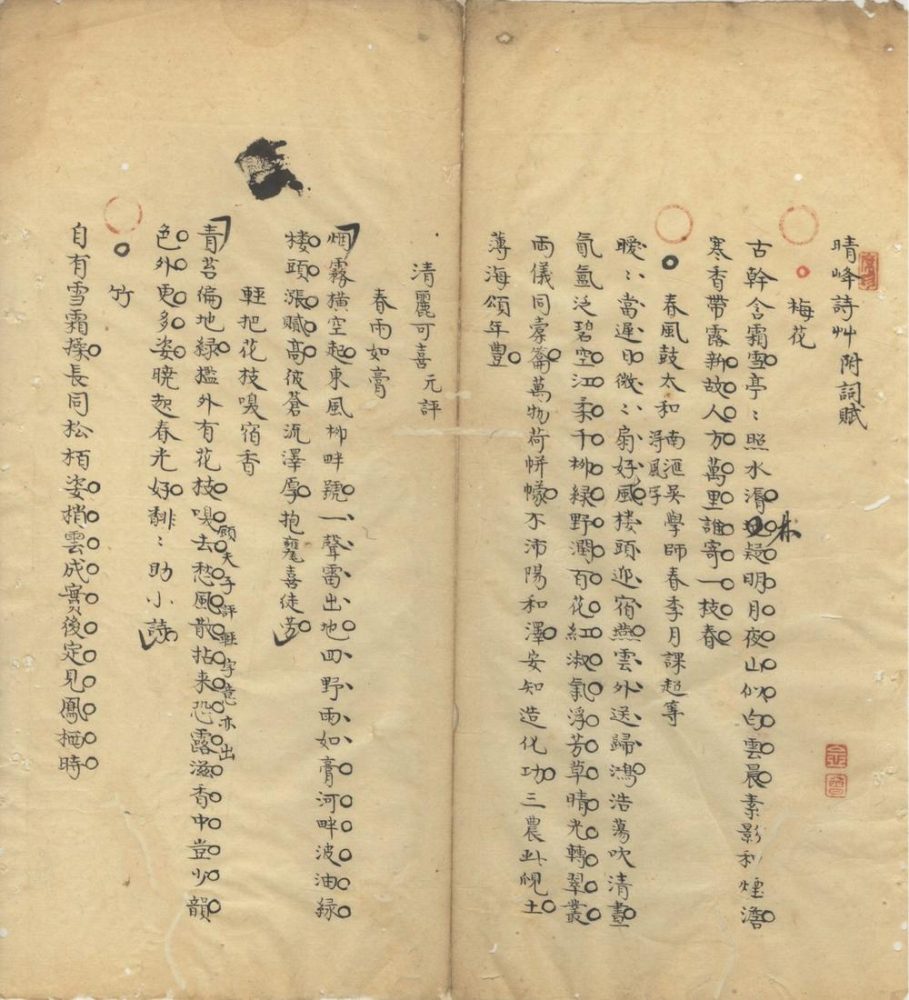 晴峰詩艸附詞賦
梅花
古幹含霜雪亭〻照水濱林疑明月夜山似白雲晨素影和煙澹
寒香帶露新故人方萬里誰寄一枝春
春風鼓太和 南滙吳學師春季月課超等
得風字
暖〻當遲日微〻扇好風楼頭迎宿燕雲外送歸鴻浩蕩吹清晝
氤氳泛碧空江柔千柳緑野潤百花紅淑氣浮芳草晴光轉翠叢
兩儀同橐籥萬物荷帡幪不沛陽和澤安知造化功三農占俔土
薄海頌年豊
清麗可喜元評
春雨如膏
烟霧横空起東風柳畔號一聲雷出地四野雨如膏河畔波油緑
楼頭漲賦高彼蒼流澤厚抱甕喜徒劳
輕把花枝嗅宿香
顧夫子評輕字意亦出
青苔偏地緑檻外有花枝嗅去愁風散拈来恐露滋香中豈少韻
色外更多姿曉起春光好馡〻助小詩
竹
自有雪霜操長同松栢姿梢雲成實後定見鳳栖時